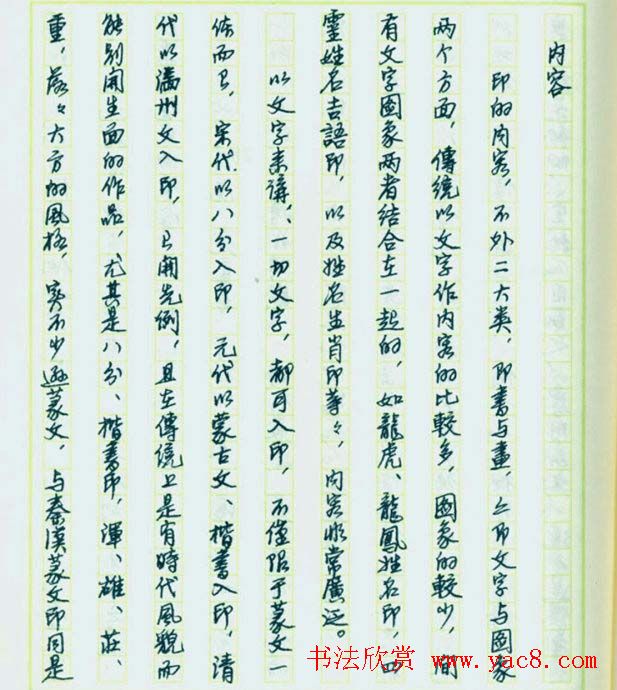 内容
印的内容，不外二大类，即書与畫，亦即文字与圖象
两个方面，傳統以文字作内容的比較多，圖象的較少，间
有文字圖象两者结合在一起的，如龍虎、龍鳳姓名印，四
靈姓名吉語印，以及姓名生肖印等々，内容非常廣泛。
以文字来講，一切文字，都可入印，不僅限于篆文一
体而已，宋代以八分入印，元代以蒙古文、楷書入印，清
代以满州文入印，已開先例，且在傳统上是有時代風貌而
能别開生面的作品，尤其是八分、楷書印，渾、雄、莊、
重，落々大方的風格，實不少遜篆文，与秦漢篆文印同是
书法欣赏 www.yac8.com